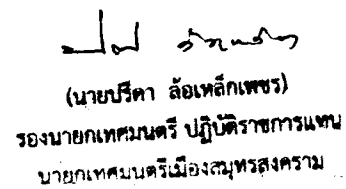 (นายปรีดา ล้อเหล็กเพชร)
รองนายกเทศมนตรี ปฏิบัติราชการแทน
นายกเทศมนตรีเมืองสมุทรสงคราม